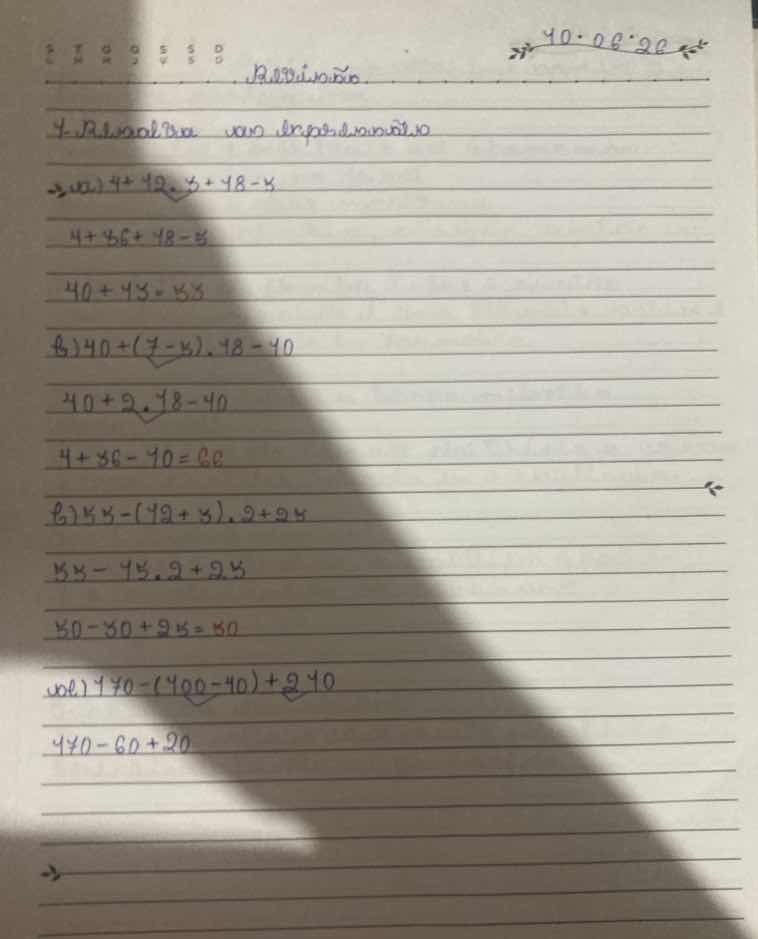 S T Q Q S S D
10.06.26
Revisão
1- Resolva as expressões
a) 4+12.3+18-5
4+36+18-5
40+13=53
b) 40+(7-5).18-10
40+2.18-10
4+36-10=66
c) 55-(12+3).2+25
55-15.2+25
50-30+25=50
d) 170-(100-40)+2.10
170-60+20